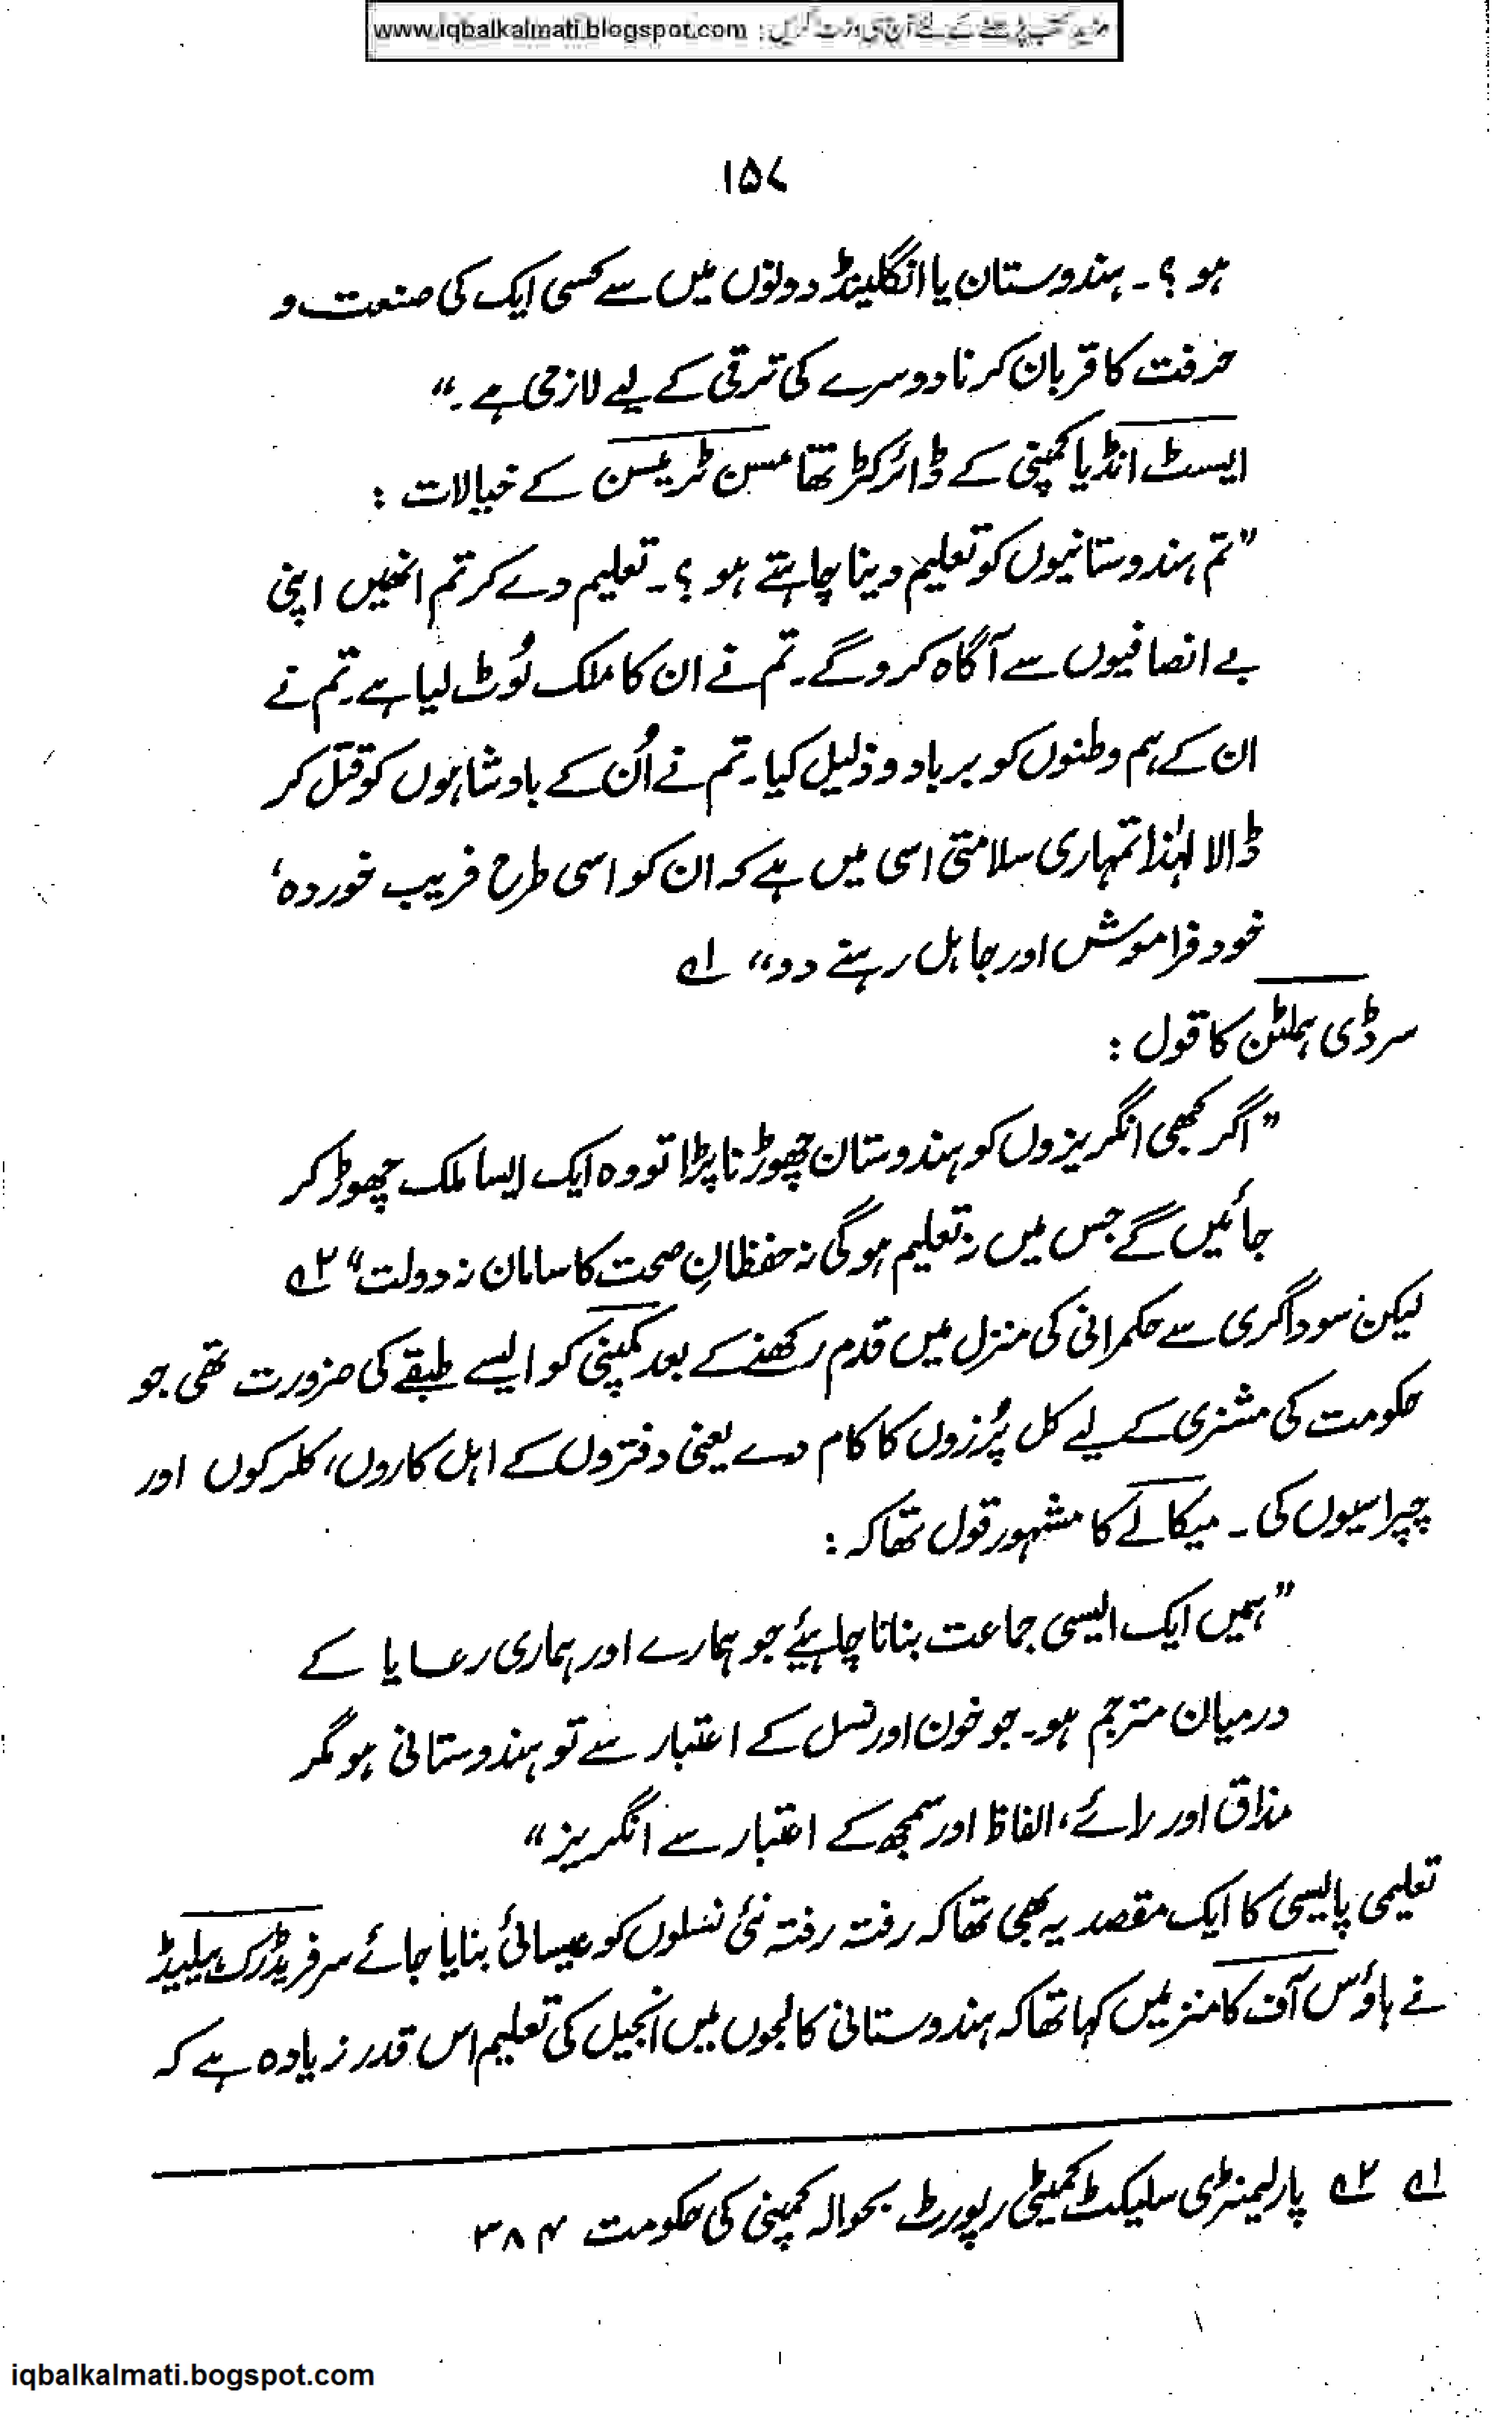 مزید کتب پڑھنے کے لئے آج ہی وزٹ کریں : www.iqbalkalmati.blogspot.com
۱۵۷
ہو ؟ ۔ ہندوستان یا انگلینڈ دونوں میں سے کسی ایک کی صنعت و
حرفت کا قربان کرنا دوسرے کی ترقی کے لیے لازمی ہے ۔"
ایسٹ انڈیا کمپنی کے ڈائرکٹر تھامسن ٹریسن کے خیالات :
"تم ہندوستانیوں کو تعلیم دینا چاہتے ہو ؟ ۔ تعلیم دے کر تم انھیں اپنی
بے انصافیوں سے آگاہ کرو گے ۔ تم نے ان کا ملک لُوٹ لیا ہے ۔ تم نے
ان کے ہم وطنوں کو برباد و ذلیل کیا ۔ تم نے اُن کے بادشاہوں کو قتل کر
ڈالا لہٰذا تمہاری سلامتی اسی میں ہے کہ ان کو اسی طرح فریب خوردہ،
خود فراموش اور جاہل رہنے دو" ؂۱
سر ڈی ہملٹن کا قول :
"اگر کبھی انگریزوں کو ہندوستان چھوڑنا پڑا تو وہ ایک ایسا ملک چھوڑ کر
جائیں گے جس میں نہ تعلیم ہو گی نہ حفظانِ صحت کا سامان نہ دولت" ؂۲
لیکن سوداگری سے حکمرانی کی منزل میں قدم رکھنے کے بعد کمپنی کو ایسے طبقے کی ضرورت تھی جو
حکومت کی مشنری کے لیے کل پُرزوں کا کام دے یعنی دفتروں کے اہل کاروں، کلرکوں اور
چپراسیوں کی ۔ میکالے کا مشہور قول تھا کہ :
"ہمیں ایک ایسی جماعت بنانا چاہیئے جو ہمارے اور ہماری رعایا کے
درمیان مترجم ہو ۔ جو خون اور نسل کے اعتبار سے تو ہندوستانی ہو مگر
مذاق اور رائے، الفاظ اور سمجھ کے اعتبار سے انگریز"
تعلیمی پالیسی کا ایک مقصد یہ بھی تھا کہ رفتہ رفتہ نئی نسلوں کو عیسائی بنایا جائے سر فریڈرک ہیلیڈ
نے ہاؤس آف کامنز میں کہا تھا کہ ہندوستانی کالجوں میں انجیل کی تعلیم اس قدر زیادہ ہے کہ
؂۱ ؂۲ پارلیمنٹری سلیکٹ کمیٹی رپورٹ بحوالہ کمپنی کی حکومت ۳۸۴
iqbalkalmati.bogspot.com